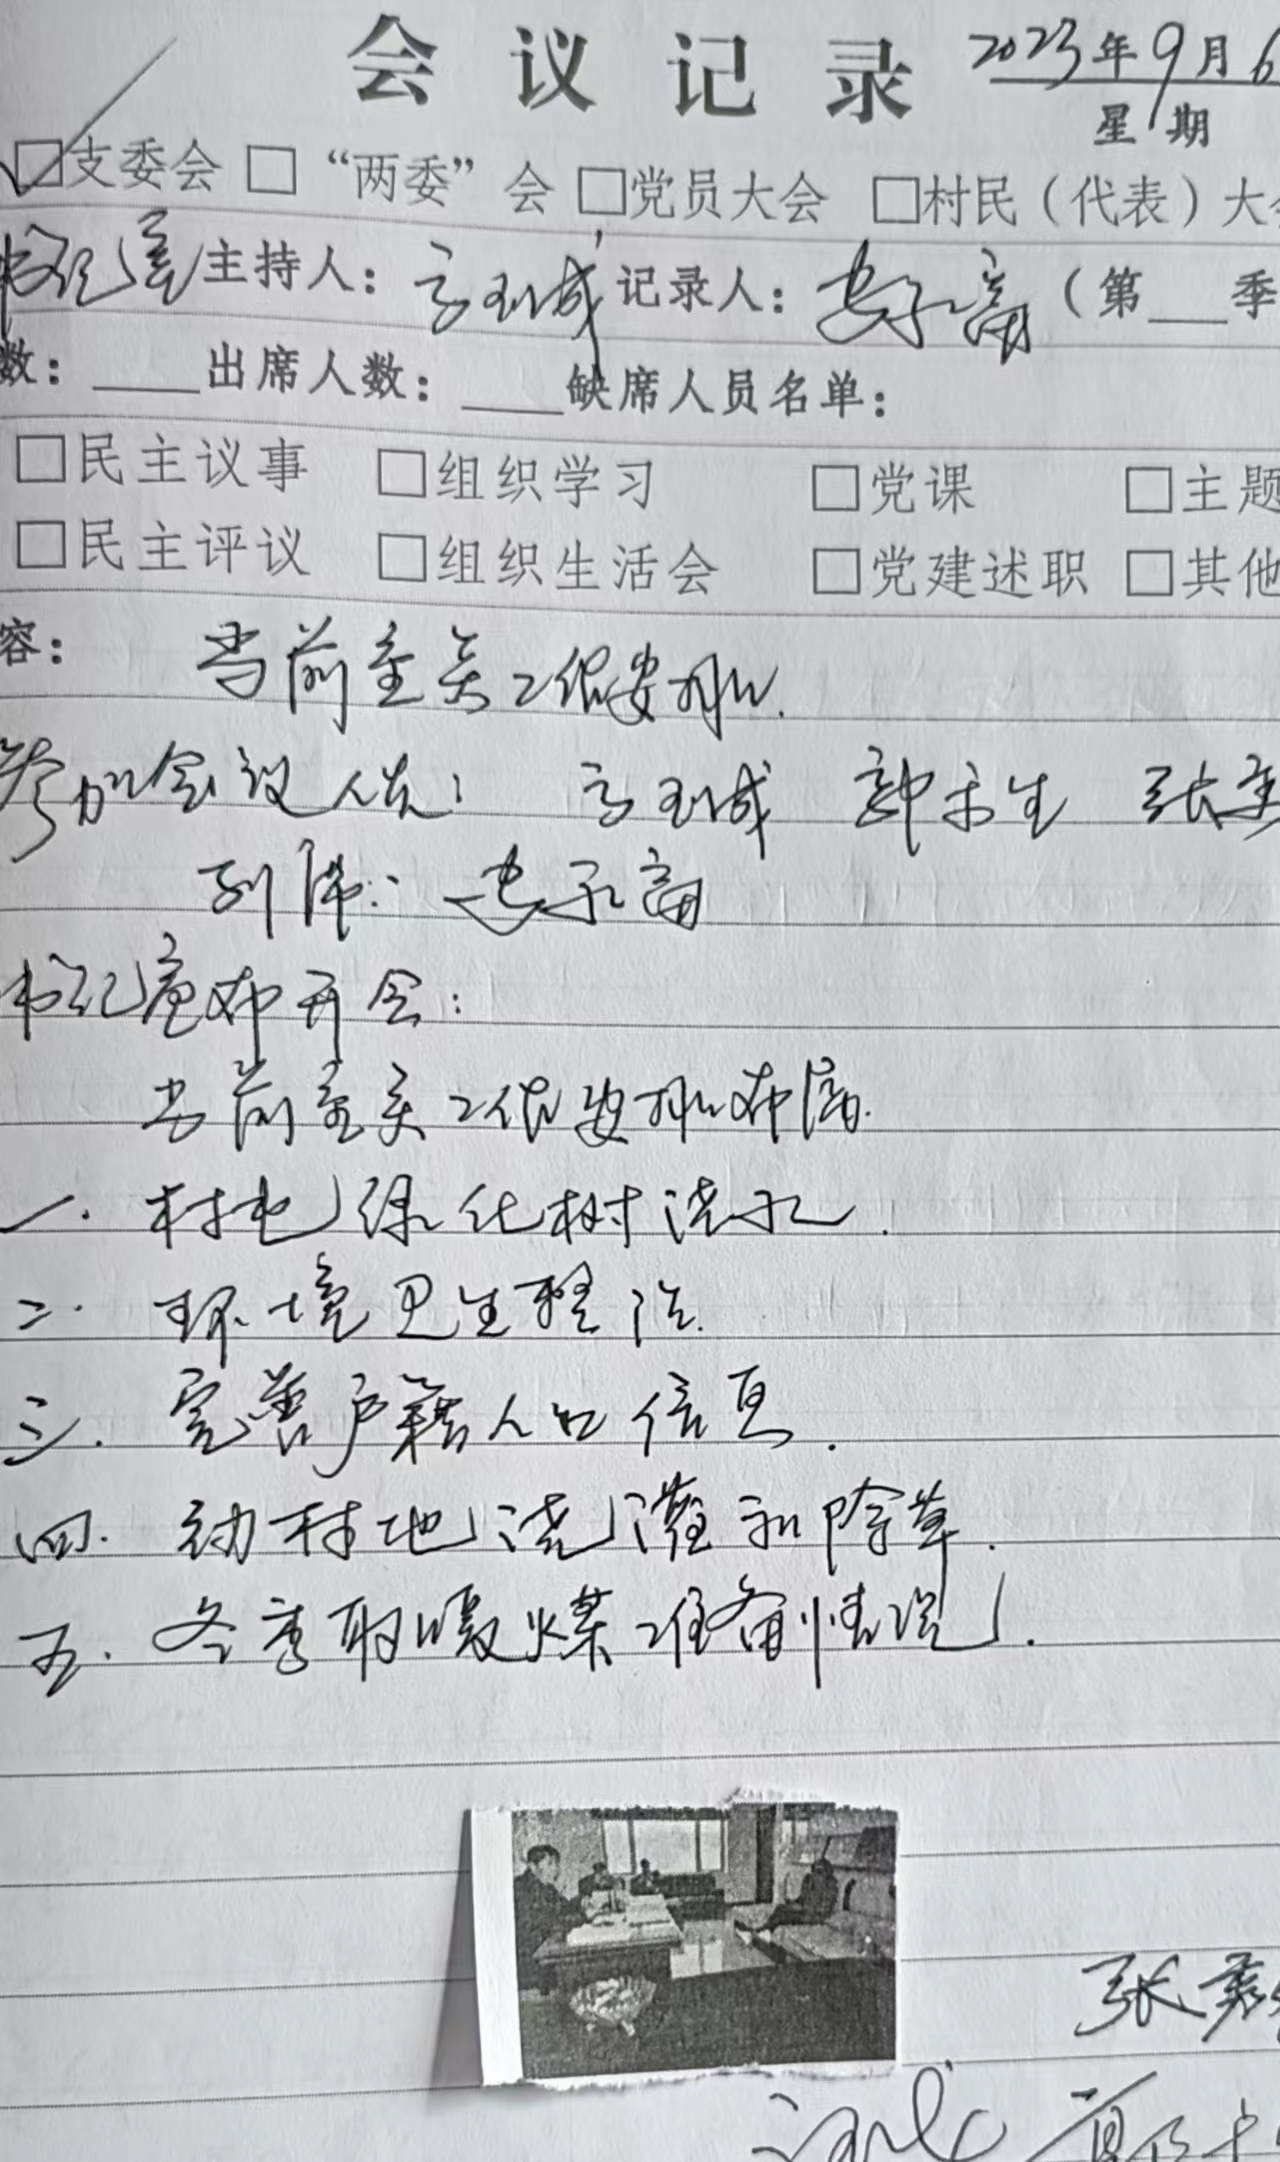 会议记录 2023年9月6
星期
□支委会 □“两委”会 □党员大会 □村民（代表）大会
书记室 主持人： 记录人： （第___季
数：____出席人数：____缺席人员名单：
□民主议事 □组织学习 □党课 □主题
□民主评议 □组织生活会 □党建述职 □其他
容： 当前重关工作安排.
参加会议人员： 张
列席：
书记宣布开会：
当前重关工作安排布属.
一. 村屯绿化树浇水.
二. 环境卫生整治.
三. 完善户籍人口信息.
四. 动林地浇灌和除草.
五. 冬季取暖煤准备情况.
张